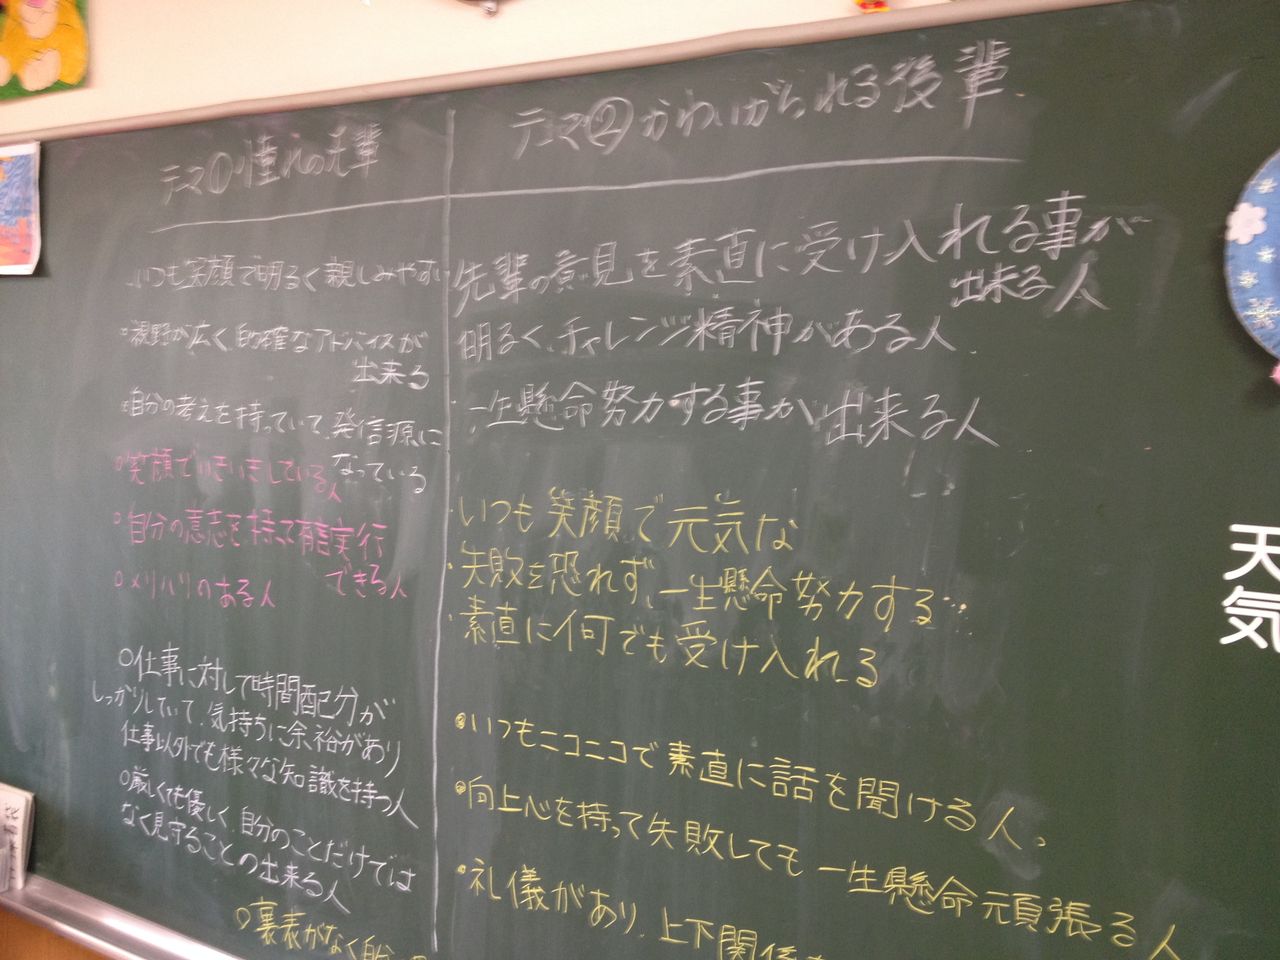 テーマ①憧れの先輩
・いつも笑顔で明るく親しみやすい
・視野が広く、的確なアドバイスが
出来る
・自分の考えを持っていて、発信源に
なっている
○笑顔でいきいきしている人
○自分の意志を持って有言実行
できる人
○メリハリのある人
○仕事に対して時間配分が
しっかりしていて、気持ちに余裕があり
仕事以外でも様々な知識を持つ人
○厳しくても優しく、自分のことだけでは
なく見守ることの出来る人
○裏表がなく
テーマ②かわいがられる後輩
先輩の意見を素直に受け入れる事が
出来る人
明るく、チャレンジ精神がある人
・一生懸命努力する事が出来る人
・いつも笑顔で元気な
・失敗を恐れず、一生懸命努力する…
・素直に何でも受け入れる
・いつもニコニコで素直に話を聞ける人。
・向上心を持って失敗しても一生懸命頑張る人
・礼儀があり、上下関係
天
気